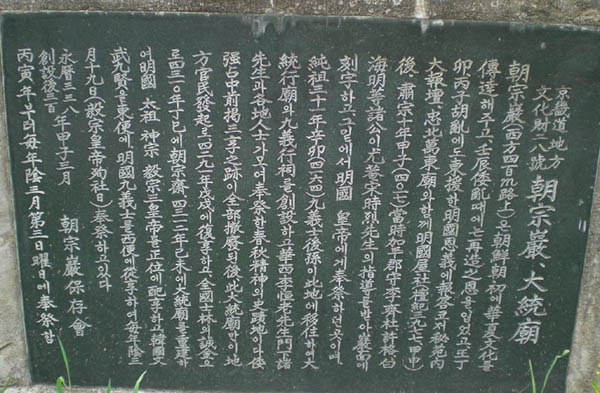 京畿道 地方
文化財二八號
朝宗巖 大統廟
朝宗巖(西方四百m路上)은 朝鮮朝初에 華夏文化를
傳達해주고 壬辰倭亂때에는 再造之恩을 입었고 丁
卯丙子胡亂에도 來援한 明國恩義에 報答코저 秘苑內
大報壇 忠北萬東廟와 함께 明國屋社(檀紀三九七七甲申)
後、肅宗十年甲子(四〇一七) 當時加平郡守李齊杜許格白
海明等諸公이 尤菴宋時烈先生의 指導를 받아 巖面에
刻字하고 그 밑에서 明國 皇帝에게 奉祭하던 곳이며
純祖三十一年辛卯(四一六四) 九義士後孫이 此地에 移住하여 大
統行廟와 九義行祠를 創設하고 華西李恒老先生門下諸
先生과 各地人士가 모여 奉祭한 春秋精神의 史蹟地이다 倭
强占中前揭三 之跡이 全部撤廢되 後 此大統廟만이 地
方官民發起로 四二九一年戊戌에 復享하고 全國士林의 誠金으
로 四三一〇年丁巳에 朝宗齋 四三一二年己未에 大統廟를 重建하
여 明國 太祖 神宗 毅宗 三皇帝를 正位에 配享하고 韓國文
武九賢을 東便에、明國九義士를 西便에 從享하여 每年陰三
月十九日(毅宗皇帝殉社日)奉祭하고있다
永曆三三八年甲子三月 朝宗巖保存會
創設後二百
丙寅年부터 每年陰三月第二日曜日에 奉祭함